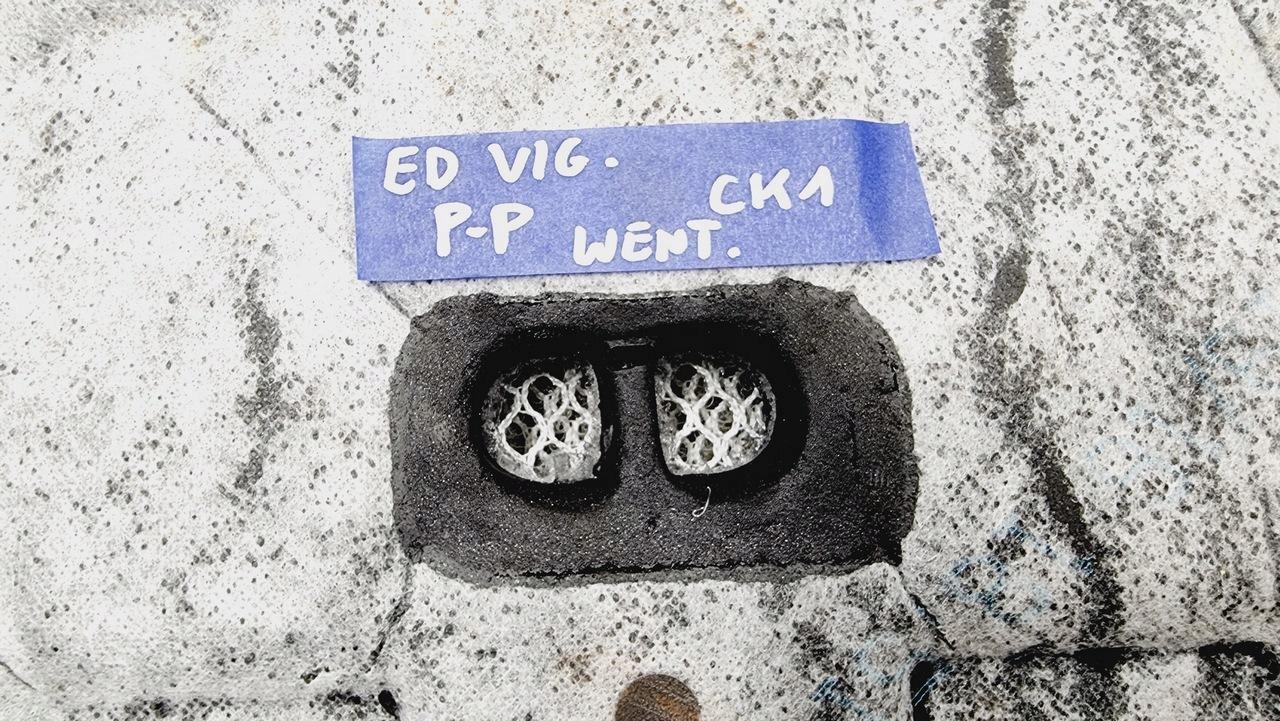 ED VIG. CK1
P-P WENT.